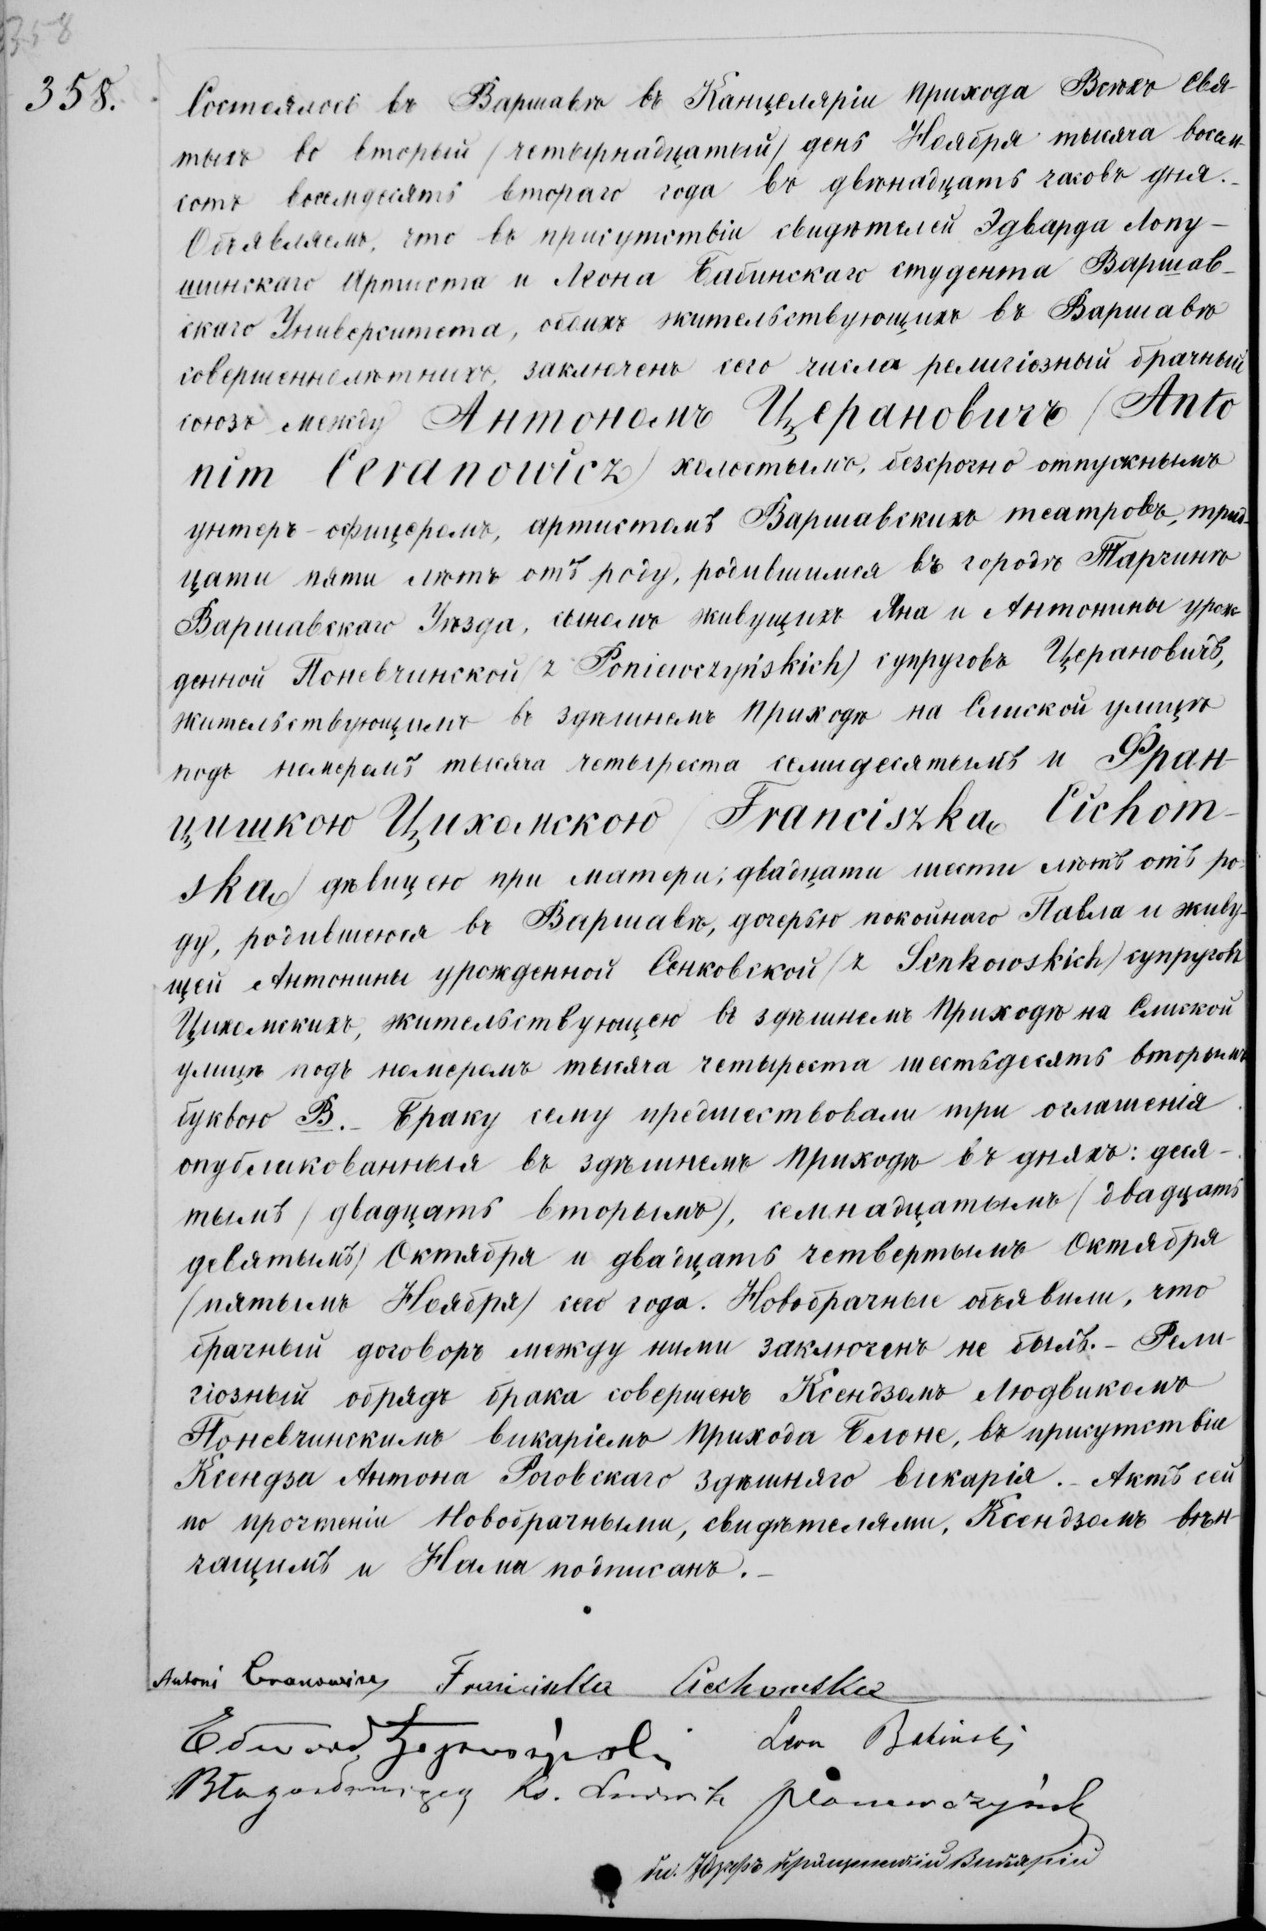 358
358.
Состоялось въ Варшавѣ въ Канцеляріи прихода Всѣхъ Свя-
тыхъ во вторый (четырнадцатый) день Ноября тысяча восем-
сотъ восемдесятъ втораго года въ двѣнадцать часовъ дня.-
Объявляемъ, что въ присутствіи свидѣтелей Эдварда Лопу-
шинскаго Артиста и Леона Бабинскаго студента Варшав-
скаго Университета, обоихъ жительствующихъ въ Варшавѣ
совершеннолѣтнихъ, заключенъ сего числа религіозный брачный
союзъ между Антономъ Церановичъ (Anto
nim Ceranowicz) холостымъ, безсрочно отпускнымъ
унтеръ-офицеромъ, артистомъ Варшавскихъ театровъ, трид-
цати пяти лѣтъ отъ роду, родившимся въ городѣ Тарчинѣ
Варшавскаго Уѣзда, сыномъ живущихъ Яна и Антонины урож-
денной Поневчинской (z Poniewczyńskich) супруговъ Церановичъ,
жительствующимъ въ здѣшнемъ приходѣ на Слиской улицѣ
подъ номеромъ тысяча четыреста семидесятымъ и Фран-
цишкою Цихомскою (Franciszka Cichom-
ska) дѣвицею при матери; двадцати шести лѣтъ отъ ро-
ду, родившеюся въ Варшавѣ, дочерью покойнаго Павла и живу-
щей Антонины урожденной Сенковской (z Senkowskich) супруговъ
Цихомскихъ, жительствующею въ здѣшнемъ приходѣ на Слиской
улицѣ подъ номеромъ тысяча четыреста шестьдесятъ вторымъ
буквою В.- Браку сему предшествовали три оглашенія
опубликованныя въ здѣшнемъ приходѣ въ дняхъ: деся-
тымъ (двадцать вторымъ), семнадцатымъ (двадцать
девятымъ) Октября и двадцать четвертымъ Октября
(пятымъ Ноября) сего года. Новобрачные объявили, что
брачный договоръ между ними заключенъ не былъ.- Рели-
гіозный обрядъ брака совершенъ Ксендзомъ Людвикомъ
Поневчинскимъ викаріемъ прихода Блоне, въ присутствіи
Ксендза Антона Роговскаго здѣшняго викарія.- Актъ сей
по прочтеніи Новобрачными, свидѣтелями, Ксендзомъ вѣн-
чащимъ и Нами подписанъ.-
Antoni Ceranowicz Franciszka Cichomska
Edward Leon Babiński
Ks. Ludwik Poniewczyński
Викарій